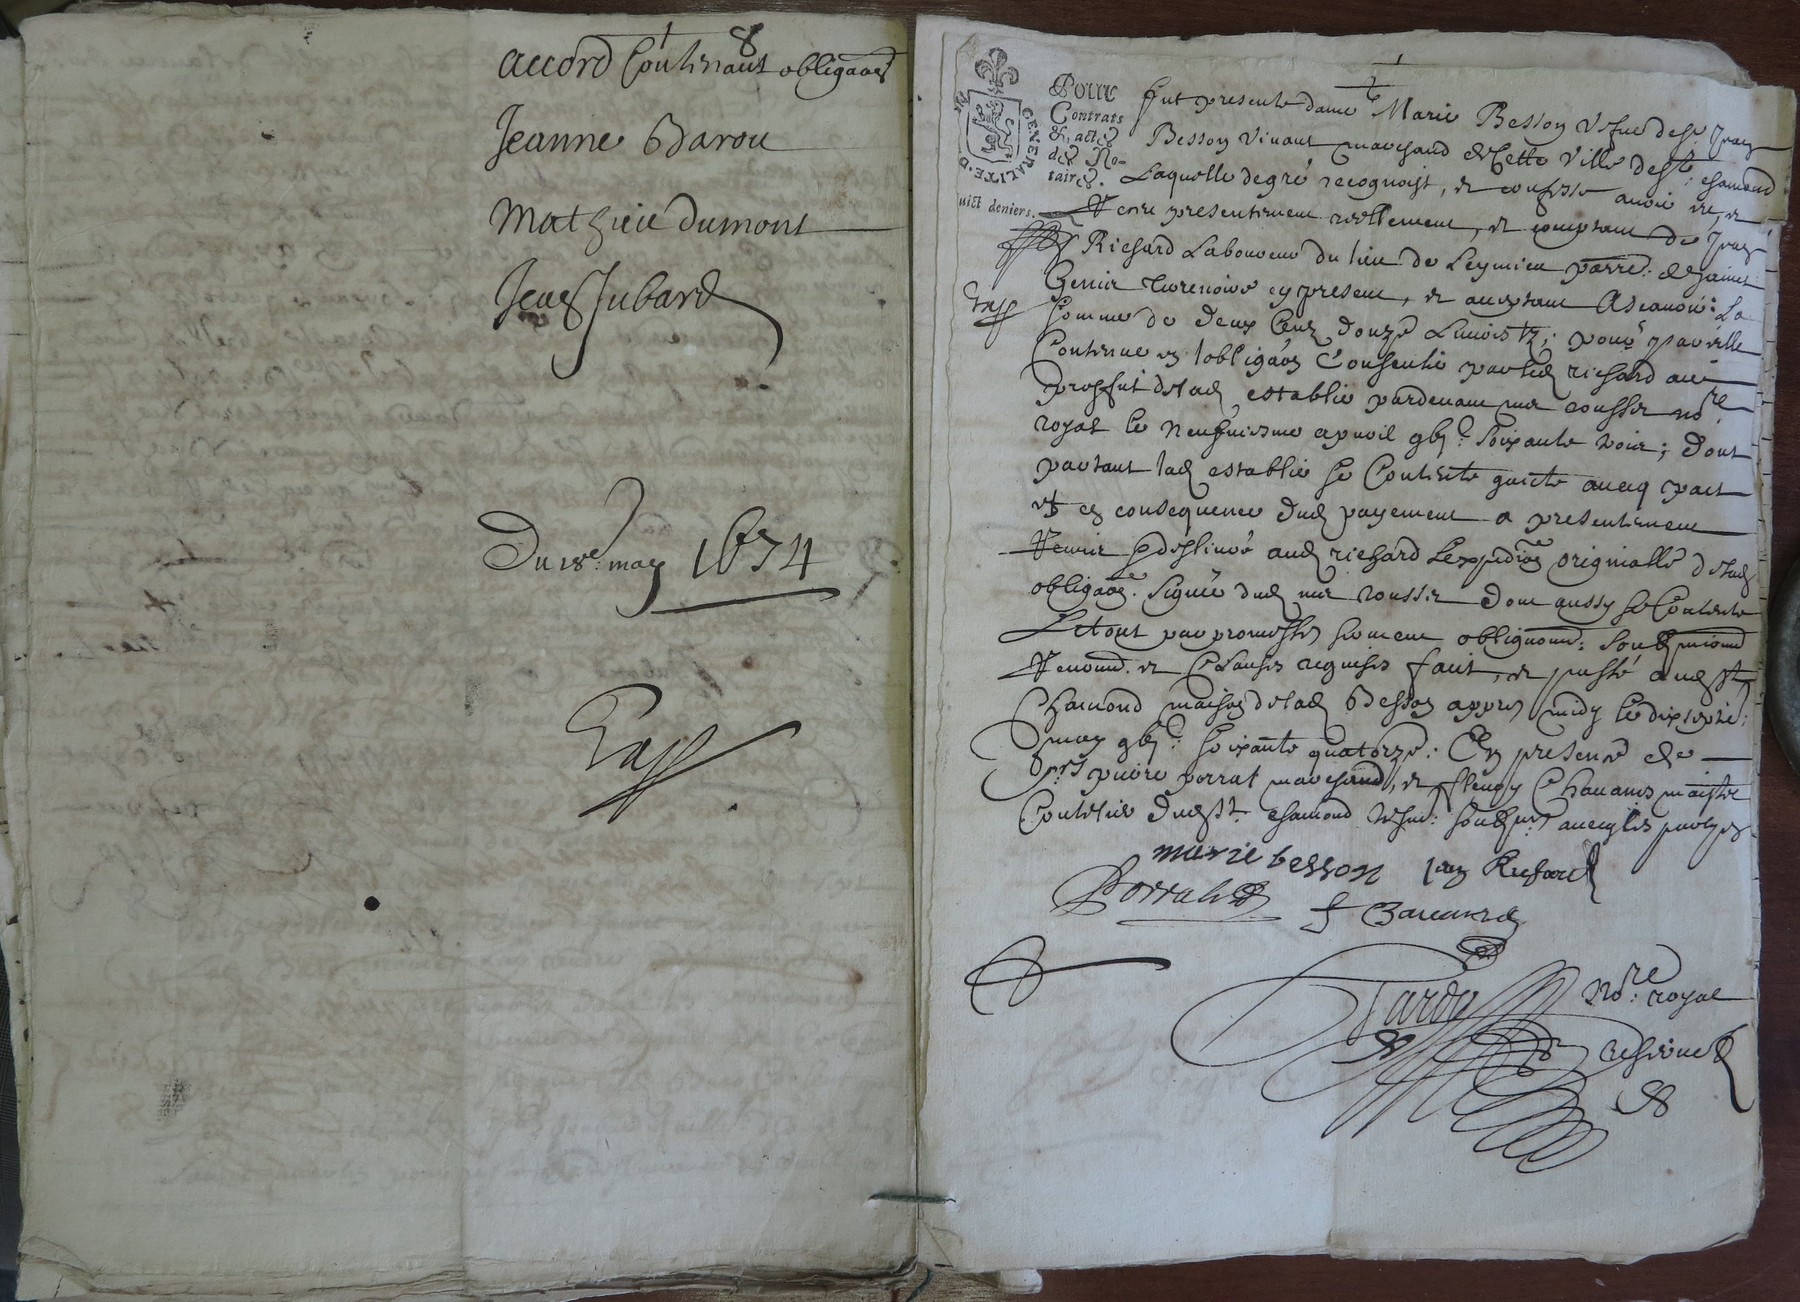 8
accord Contenant obligaōn
Jeanne Barou
Mathieu dumont
Jean Jubard
Du 18e. may 1674
Exp
GENERALITE D
Pour
Contrats
& actes
des No-
taires.
uict deniers.
Exp
fut presente dame Marie Besson vefve de sr Jean
Besson vivant marchand de Cette Ville de st: chamond
Laquelle de gré recognoist, et confesse avoir eu, et
Receu presentement reellement, et comptant de Jean
Richard Laboureur du lieu de Leymieu parre: de saint
Genis Terrenoire cy present, et acceptant Ascavoir: La
somme de deux Cens douze Livres tz; pour pareille
Contenue en lobligaōn Consentie par led richard au
proffit de lad establie pardevant me rousset nore
royal le neufviesme apvril gbic: soixante trois; dont
partant lad establie se Contente quicte avecq pact
Et en consequence dud payement a presentement
Remis aud richard Lexpediōn originalle de lad
obligaōn. signée dud me rousset dont aussy se Contente
Le tout par promesses serment obligaōns: soubmiond
Renond. et Clauses requises fait, et passé aud st
Chamond maison de lad Besson appres midy le dixseptie:
may gbic: soixante quatorze: En presence de
srs pierre porral marchand, et fleury Chavanes maistre
Coutelier dud st. chamond tesmd: soubznes avecq les partyes
marie besson jean Richard
Porral
f Chavanes
Tardy nore: royal
reservé